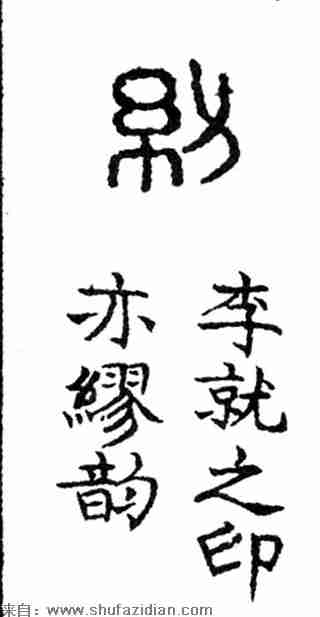 李就之印
亦繆韵
来自：www.shufazidian.com